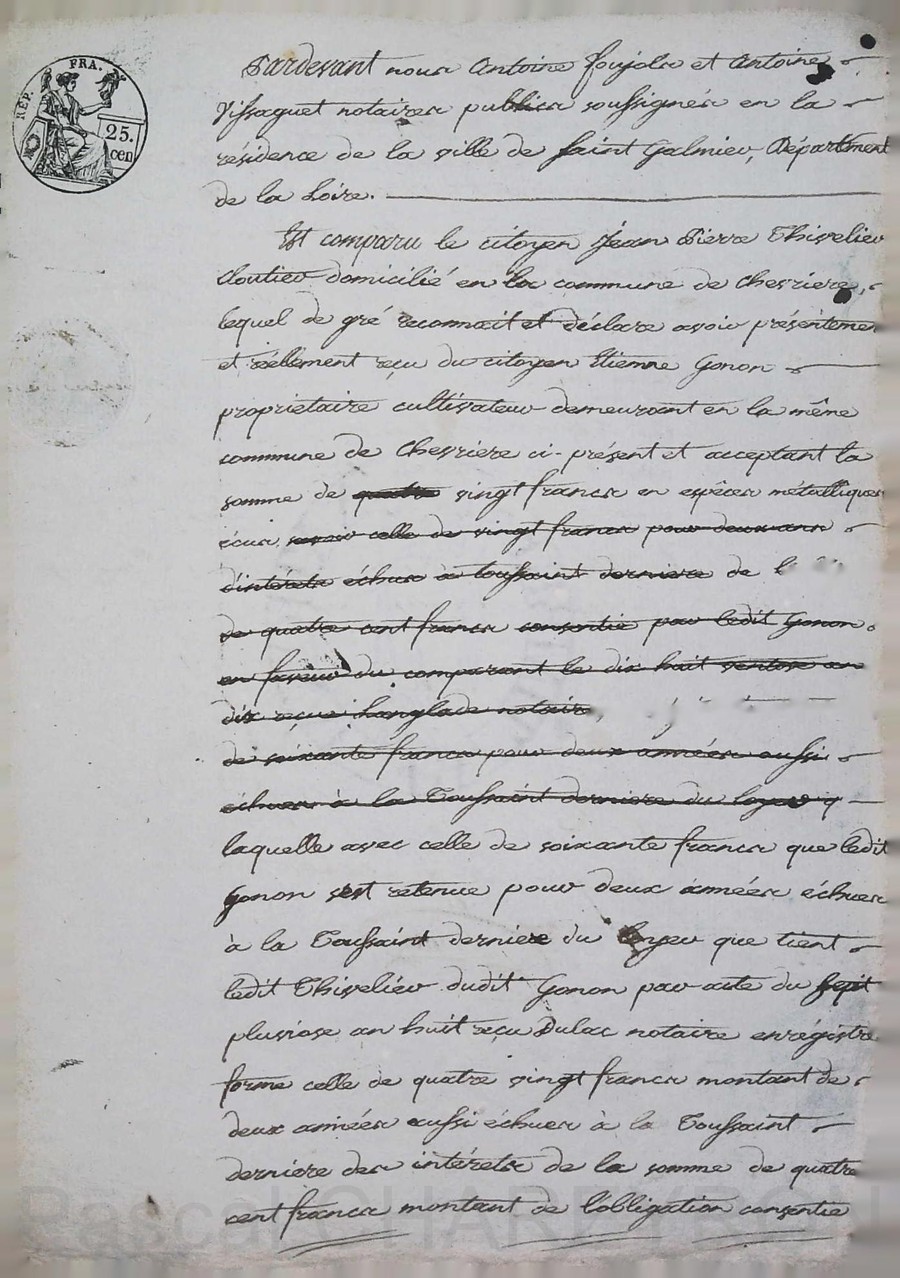 RÉP. FRA.
25.
cen
Pardevant nous Antoine Foujols et Antoine
Vissaguet notaires publics soussignés en la
résidence de la ville de saint Galmier, Département
de la Loire.
Est comparu le citoyen Jean Pierre Thivelier
cloutier domicilié en la commune de Chevriere,
lequel de gré reconnait et déclare avoir présenteme
et réellement reçu du citoyen Etienne Gonon
proprietaire cultivateur demeurant en la même
commune de Chevriere ci-présent et acceptant la
somme de quatre vingt francs en espèces métalliques
écus, savoir celle de vingt francs pour deux ans
d'intérêts échus à toussaint derniere de l
de quatre cent francs consentie par ledit Gonon
en faveur du comparant le dix huit ventose an
dix reçue Langlade notaire,
de soixante francs pour deux années aussi
échues à la Toussaint derniere du loyer q
laquelle avec celle de soixante francs que ledit
Gonon s'est retenue pour deux années échues
à la Toussaint derniere du loyer que tient
ledit Thivelier dudit Gonon par acte du sept
pluviose an huit reçu Dulac notaire enrégistré
forme celle de quatre vingt francs montant de
deux années aussi échues à la Toussaint
derniere des intérets de la somme de quatre
cent francs montant de l'obligation consentie
Pascal CHAREYRON